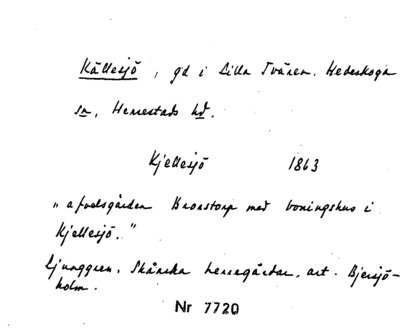 Källesjö, gd i Lilla Tvären. Hedeskoga
sn, Herrestads hd.
Kjellesjö 1863
"afvelsgården Bronstorp med boningshus i
Kjellesjö."
Ljunggren. Skånska herregårdar, art. Bjersjö-
holm.
Nr 7720